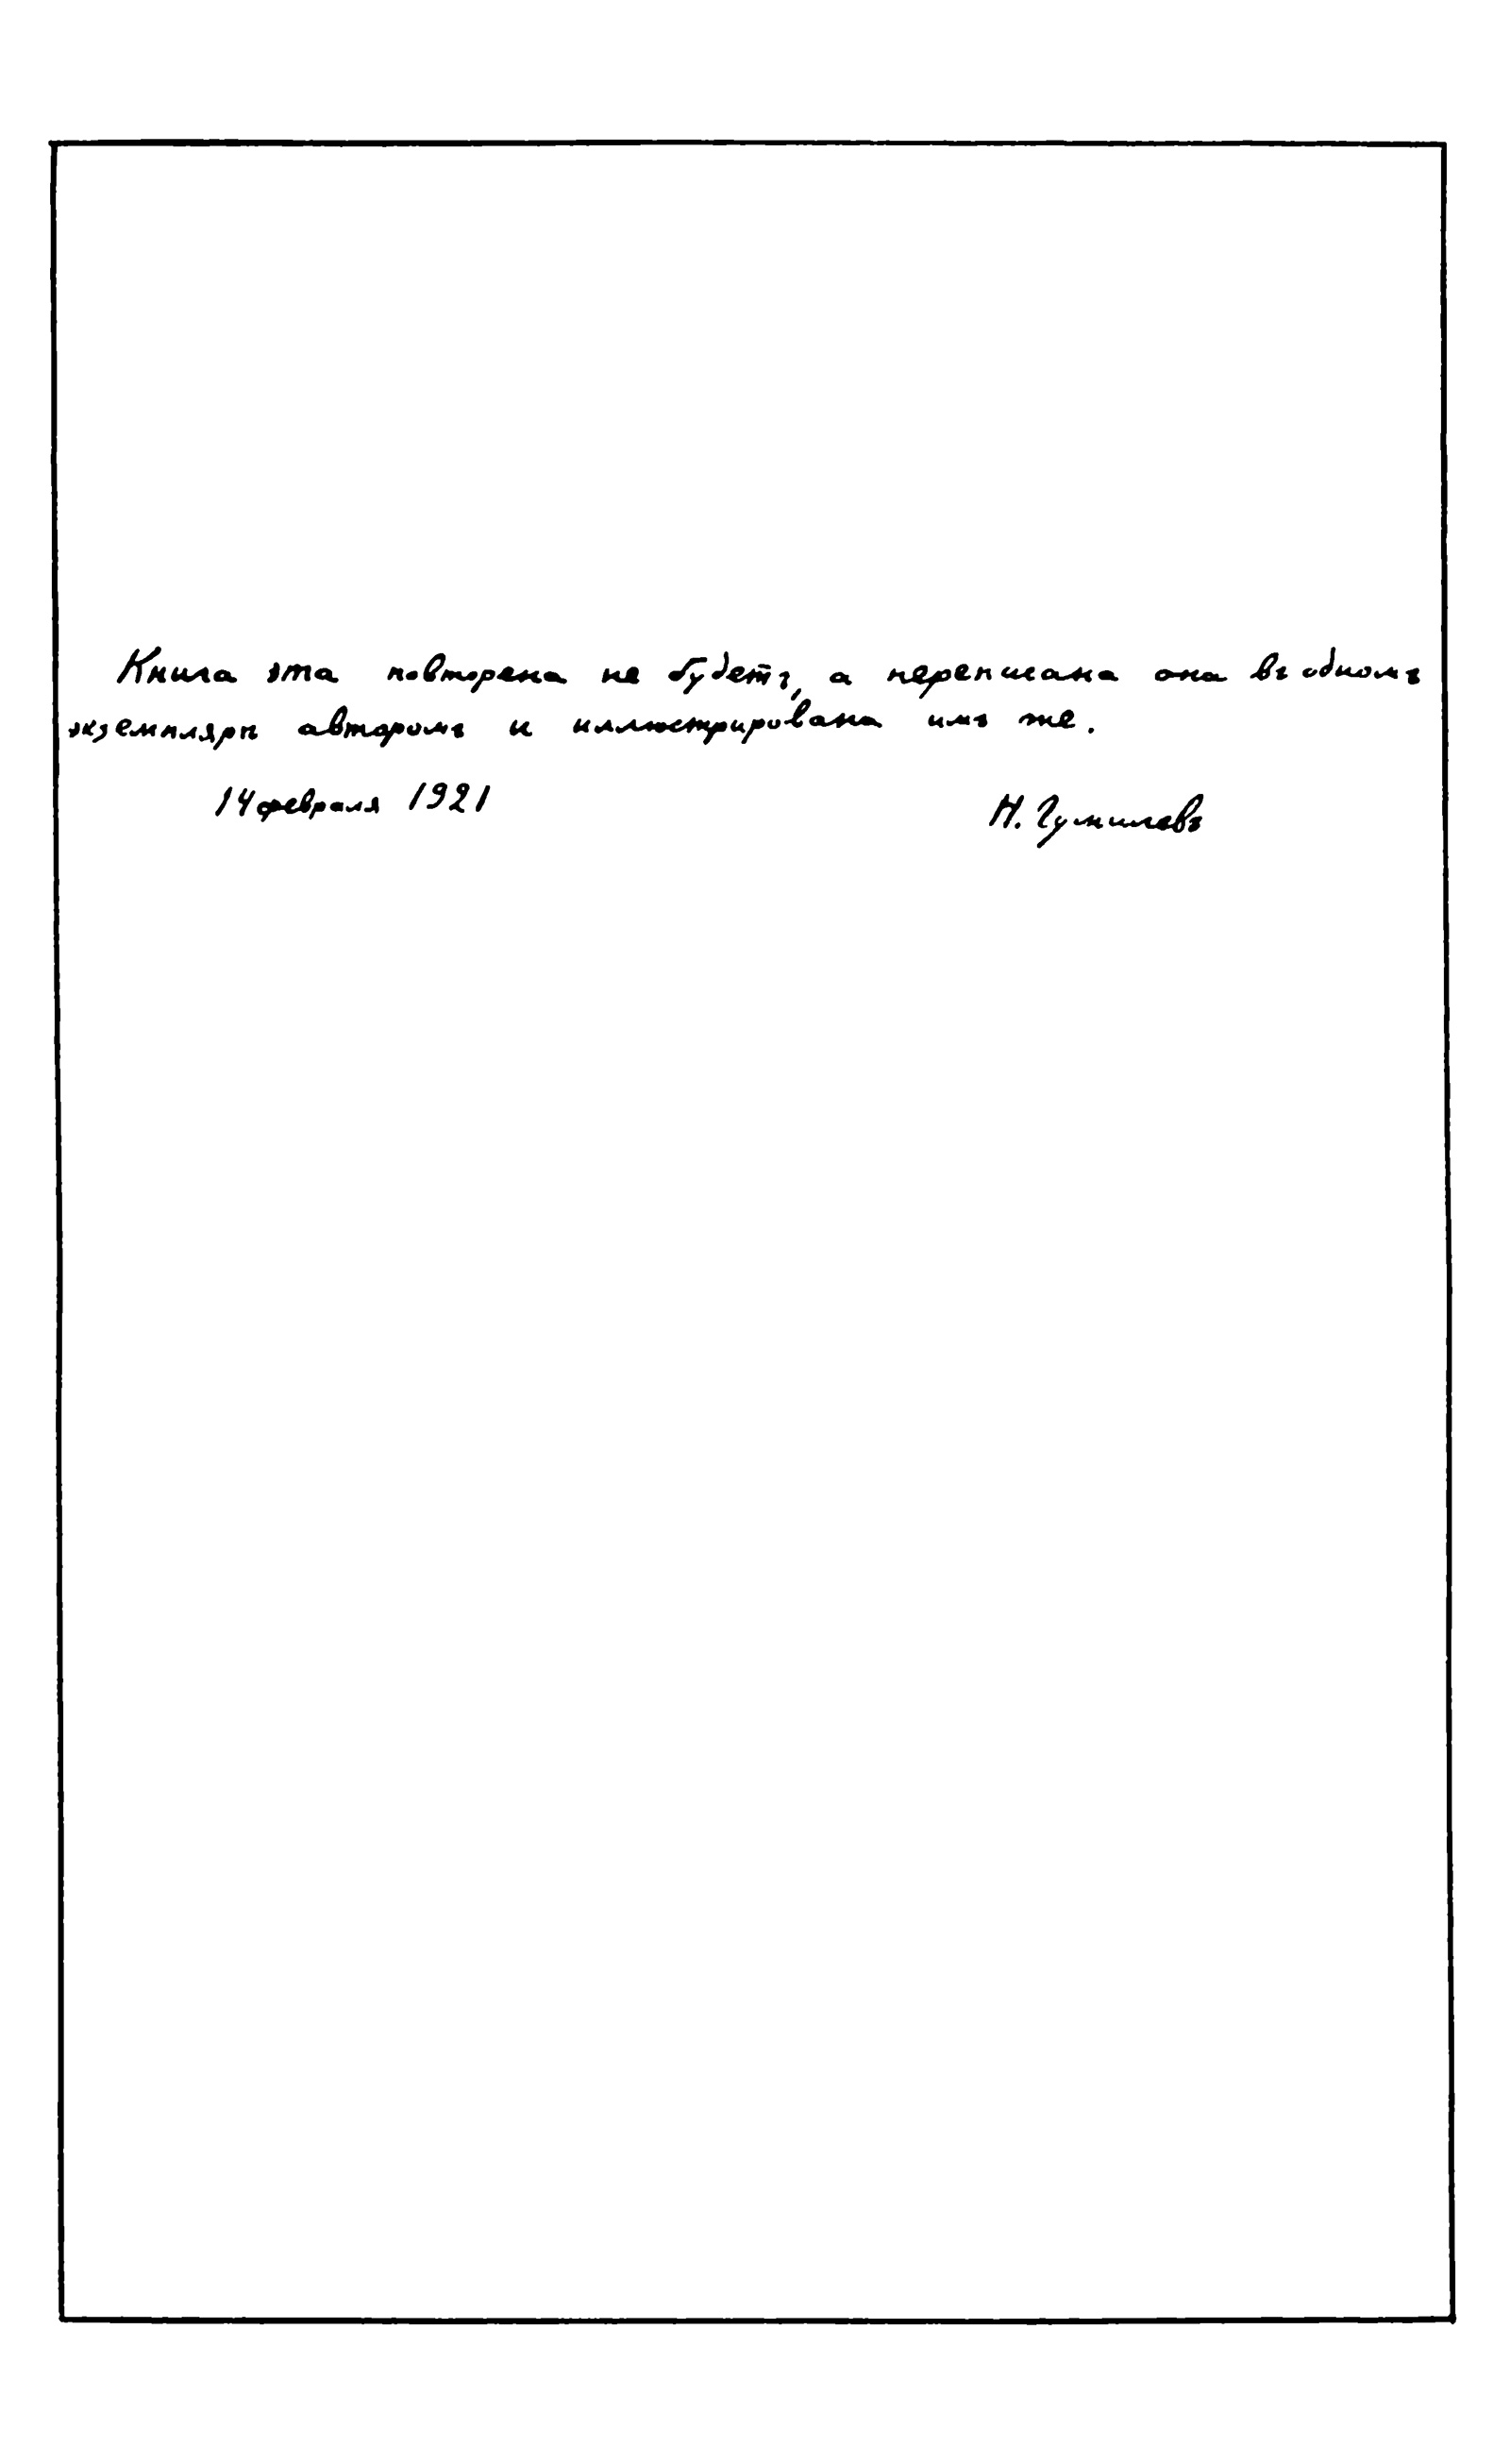 Книга эта повторена не будетъ, а переписана она въ одномъ
экземплярѣ авторомъ и иллюстрирована имъ же.
14 февраля 1921
Н. Гумилевъ